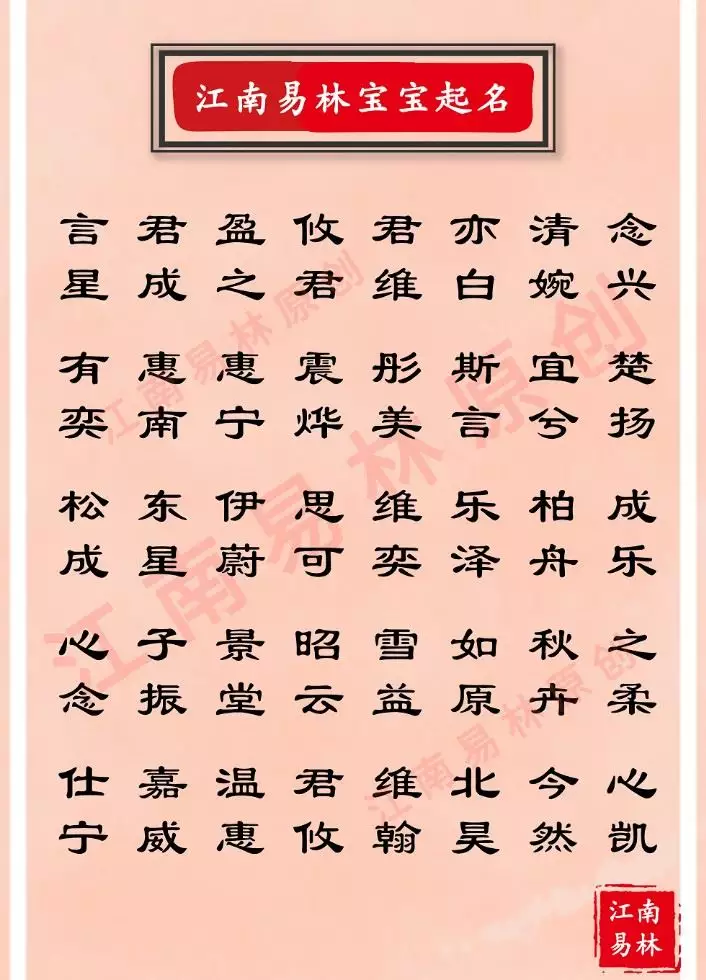 江南易林宝宝起名
言君盈攸君亦清念
星成之君维白婉兴
有惠惠震彤斯宜楚
奕南宁烨美言兮扬
松东伊思维乐柏成
成星蔚可奕泽舟乐
心子景昭雪如秋之
念振堂云益原卉柔
仕嘉温君维北今心
宁威惠攸翰昊然凯
江南易林原创
江南易林原创
江南易林原创
江南
易林